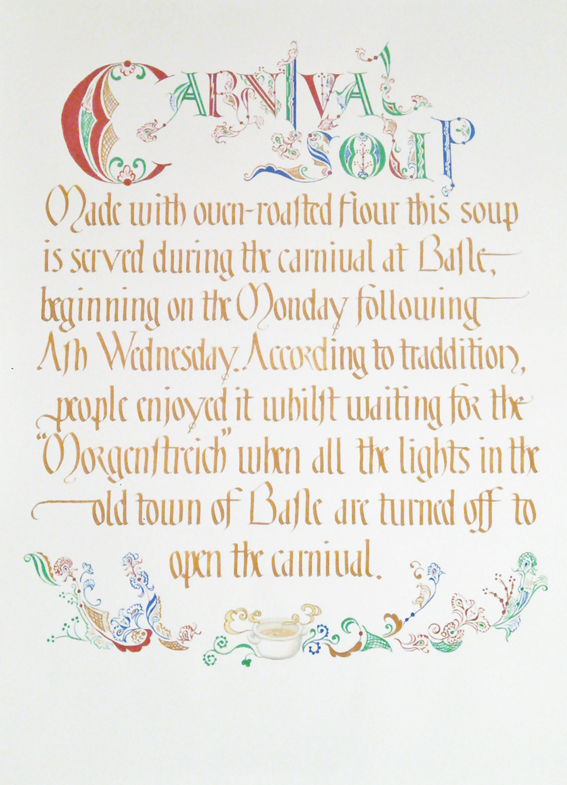 Carnival
Soup
Made with oven-roasted flour this soup
is served during the carnival at Basle,
beginning on the Monday following
Ash Wednesday. According to traddition,
people enjoyed it whilst waiting for the
"Morgenstreich" when all the lights in the
old town of Basle are turned off to
open the carnival.